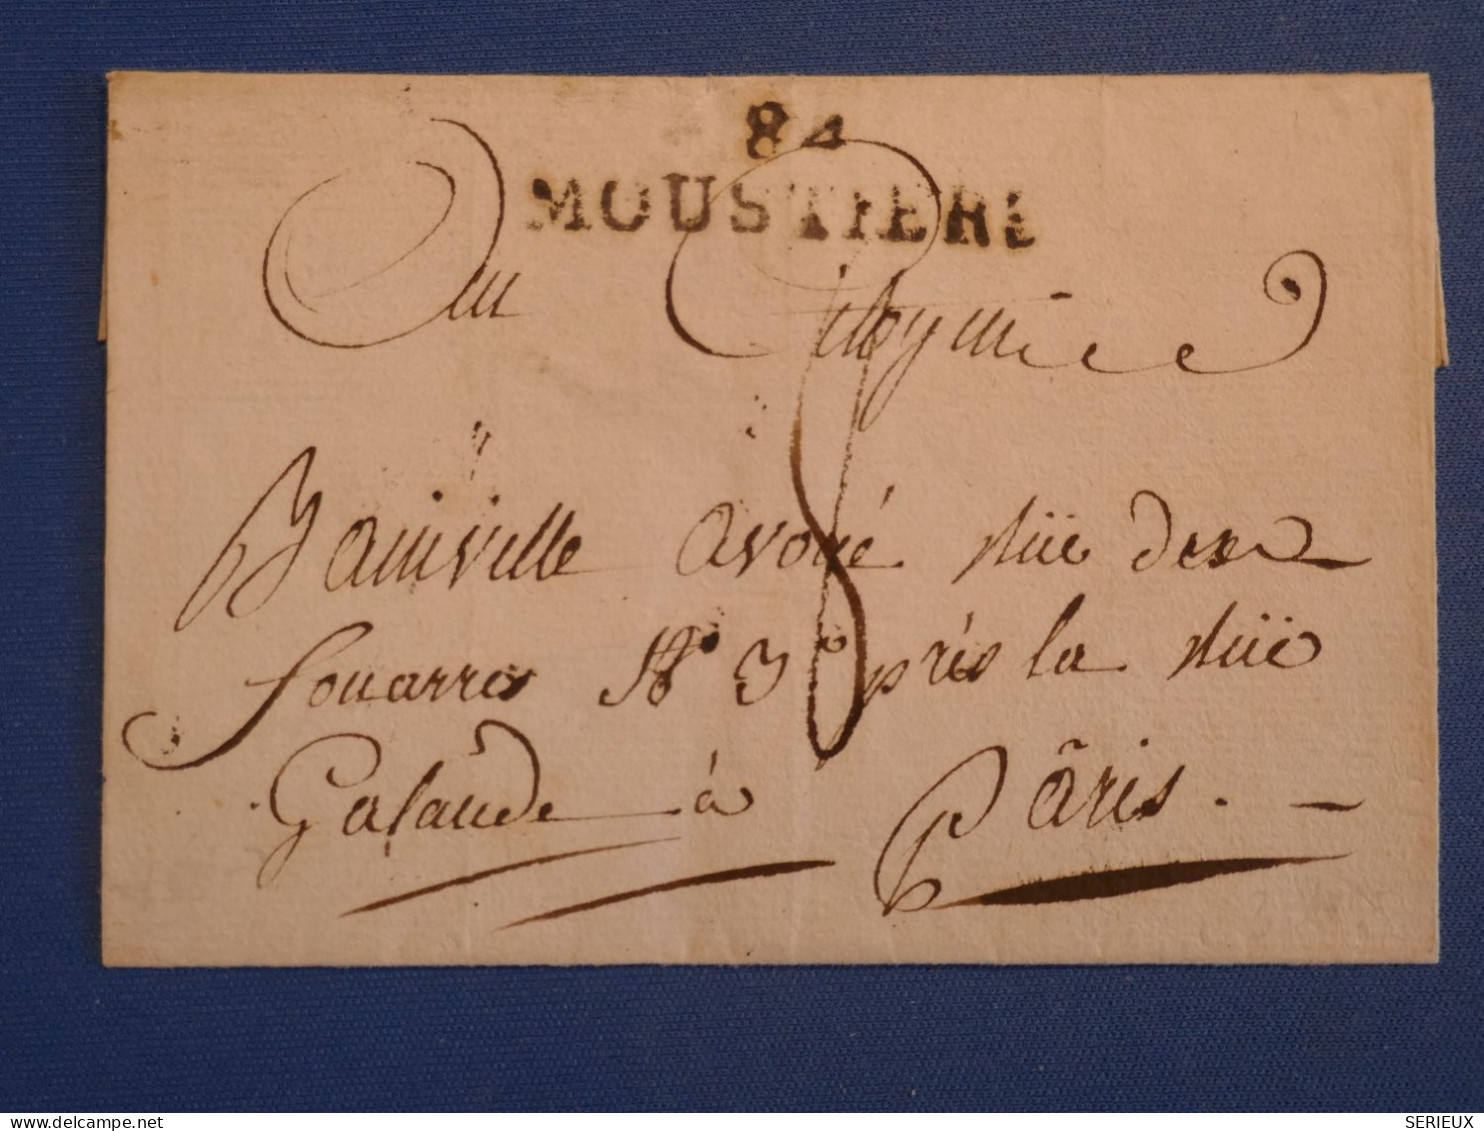 84
MOUSTIERE
Au Citoyen
8
Bainville avoué Rüe des
fouarres N° 3 près la Rüe
Galande à Pâris. -
delcampe.net
SERIEUX